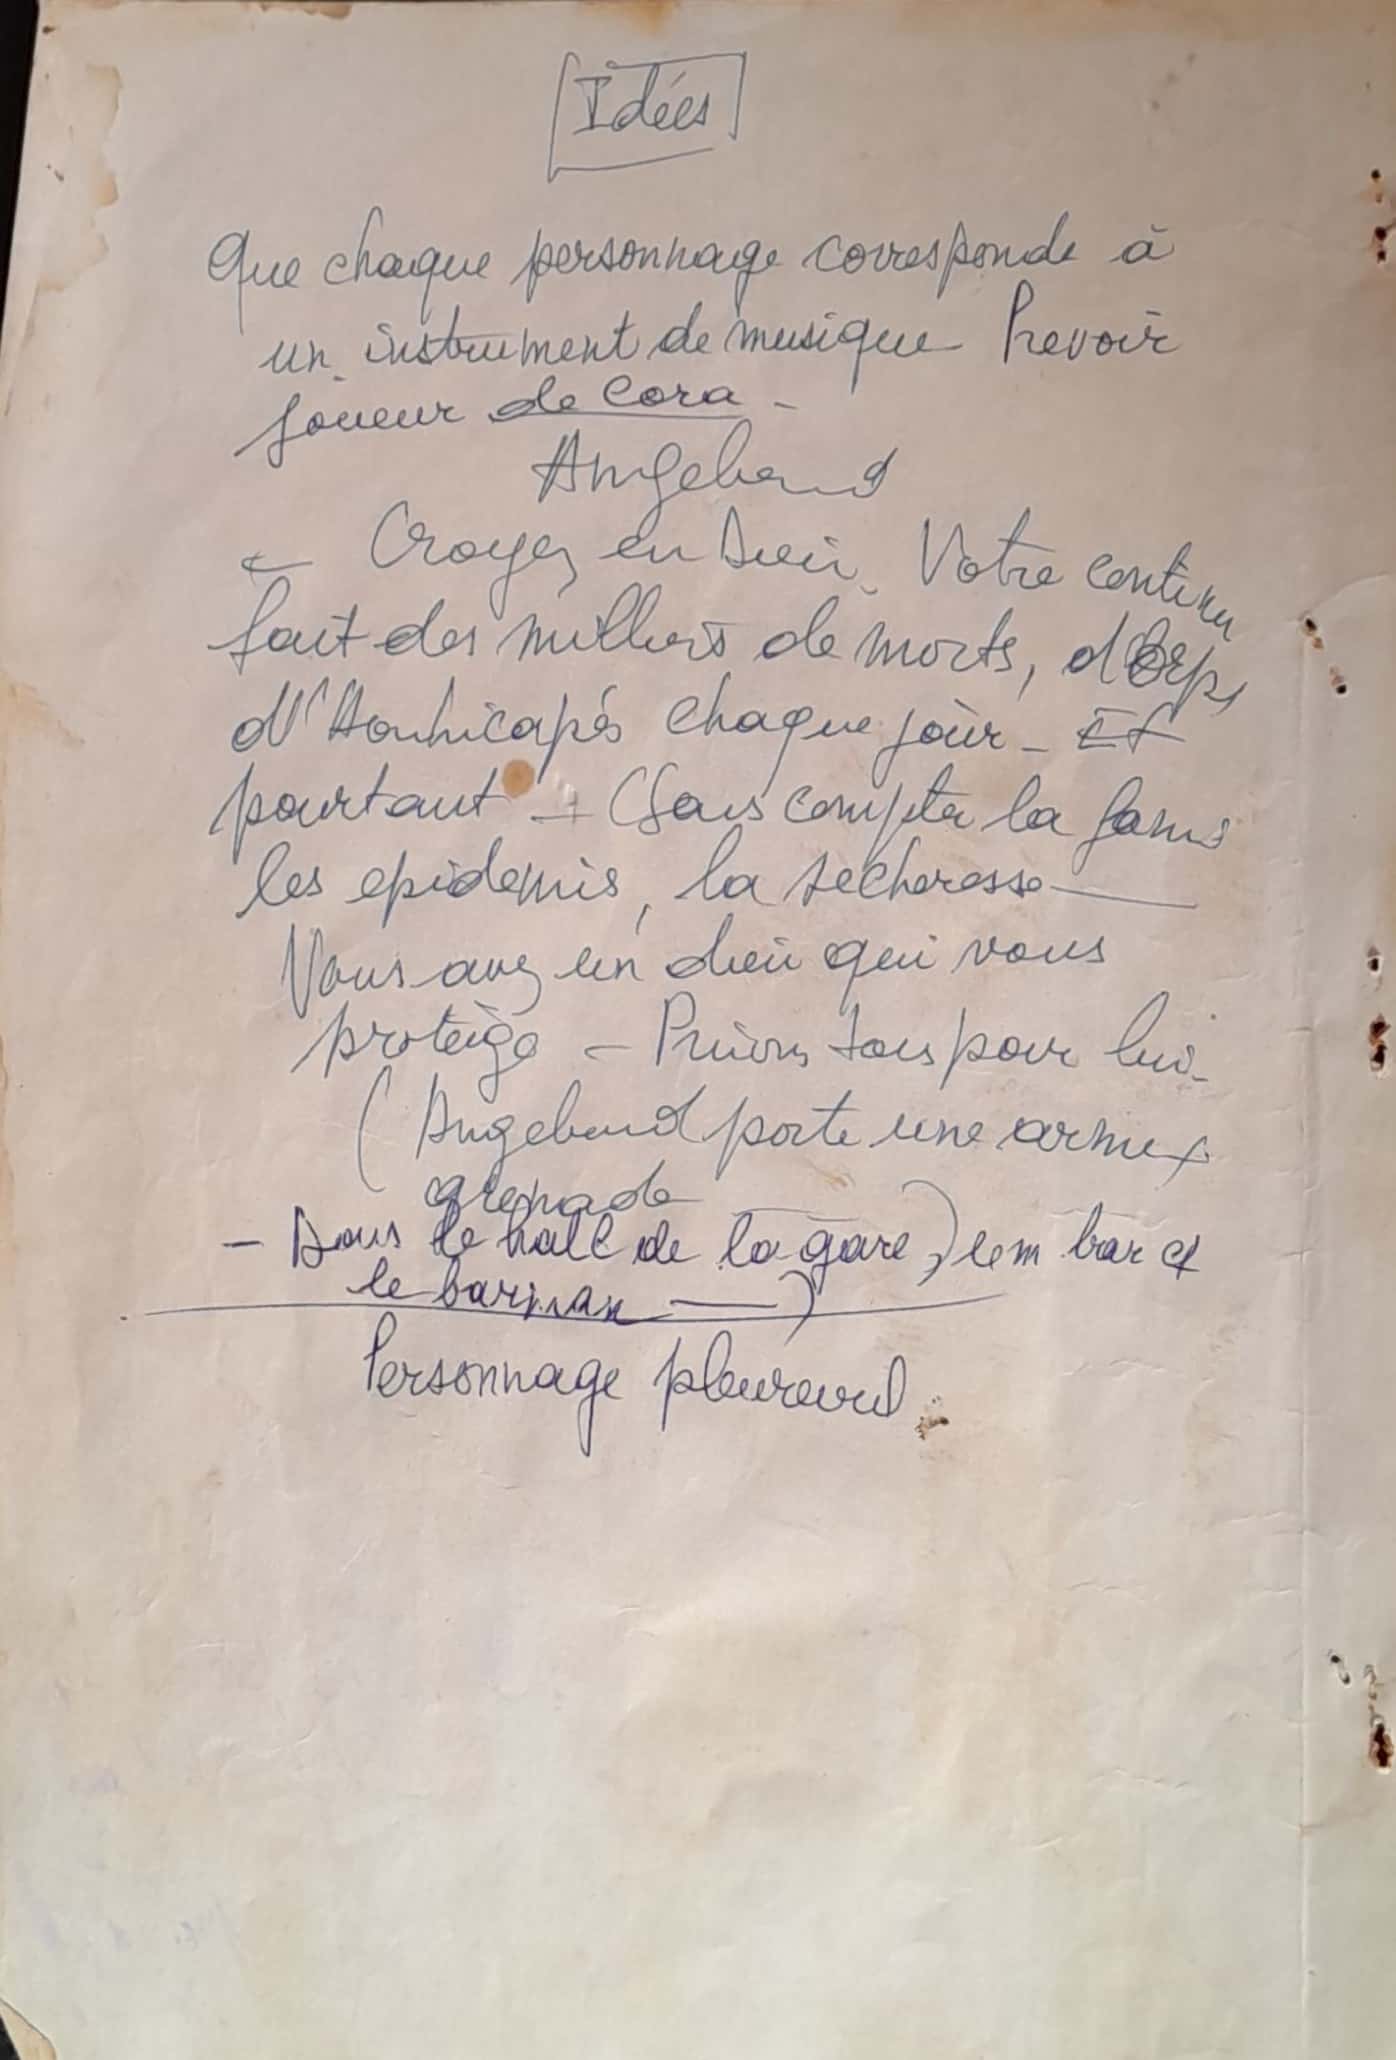 Idées
Que chaque personnage corresponde à
un instrument de musique Prevoir
joueur de Cora -
Angebend
- Croyez en Dieu. Votre continen
fait des milliers de morts, d'Orps
d'Handicapés chaque jour - Et
pourtant - (Sans compter la famine
les epidemis, la secheresse —
Vous avez un dieu qui vous
protège - Prions tous pour lui -
(Angebend porte une arme x
grenade
- Dans le hall de la gare, ) un bar et
le barman — )
Personnage pleureurd